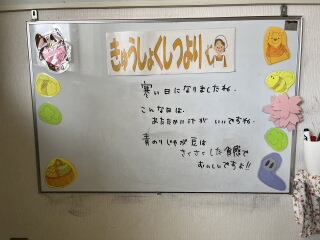 きゅうしょくしつより
寒い日になりましたね。
こんな日は、
あたたかいものが いいですね。
青のりじゃが豆は
さくさくした食感で
おいしいですよ!!